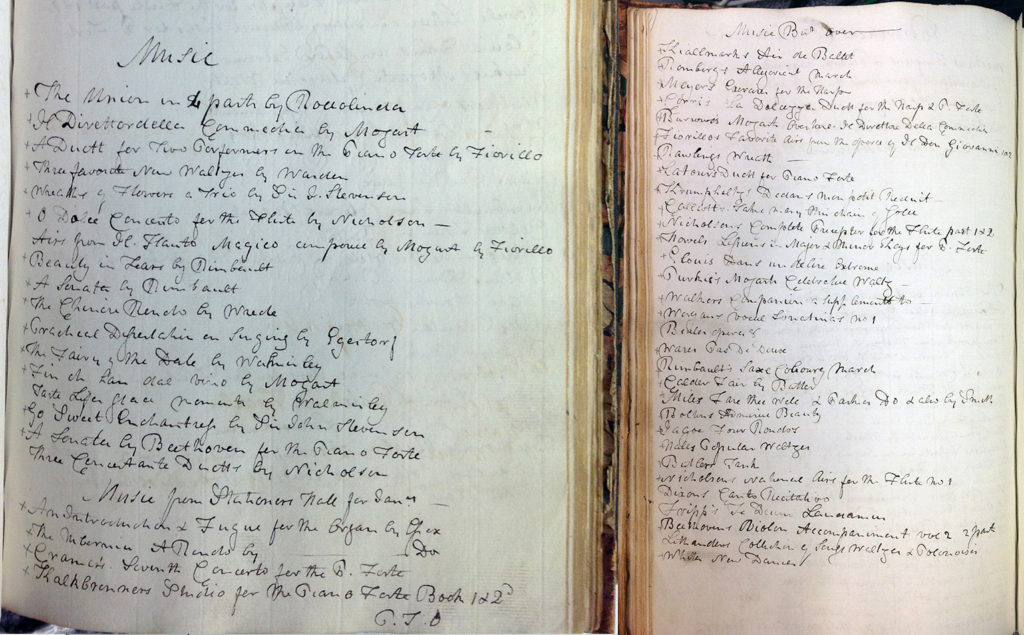 Music
+ The Union in 4 parts by
+ Il Direttordella Commedia by Mozart —
+ A Duett for Two Performers on the Piano Forte by Fiorillo
+ Three favorite New Waltzes by
+ Wreaths of Flowers a Trio by Sir J. Stevenson
+ O Dolce Concerto for the Flute by Nicholson —
Airs from Il Flauto Magico composed by Mozart by Fiorillo
+ Beauty in Tears by Rimbault
+ A Sonata by Rimbault
+ The Rondo by
+ on Singing by Egestorf
+ The Fairy of the Dale by Walmisley
+ Fin ch han dal vino by Mozart
Taste Lifes glad moments by Walmisley
+ Go Sweet Enchantress by Sir John Stevenson
+ A Sonata by Beethoven for the Piano Forte
Three Concertante Duetts by Nicholson
Music from Stationers Hall for —
+ An Introduction & Fugue for the Organ by Essex
+ The Hibernia A Rondo by Do
+ Cramers Seventh Concerto for the P. Forte
+ Kalkbrenners Studio for the Piano Forte Book 1 & 2d
P. T. O
Music over
+ Air de Ballet
Rombergs Allegorical March
+ Meyers Exercise for the Harp
+ La Duett for the Harp & P. Forte
+ Burrowes Mozarts Overture Il Direttore Della Commedia
+ Fiorillos Favorite Airs from the opera of Il Don Giovanni 1 & 2
Rawlings Wreath —
+ Latours Duett for Piano Forte
+
+ Callcotts
+ Nicholsons Complete Preceptor for the Flute part 1 & 2
+ Novels Lessons in Major & Minor Keys for P. Forte
+ St Louis Dans un delire Extreme
+ Purkis's Mozarts Celebrated Waltz —
+ Walkers Companion a Supplement to —
+ Sonatinas No 1
operas
Wares Pas De Deux
Rimbault's Saxe Cobourg March
+ Calder Fair by Butler
+ Miles Fare thee Well & Do & also by Smith
Beauty
+ Four Rondos
Popular Waltzes
+ Butlers
+ Nicholsons National Airs for the Flute No 1
Dixons Canto Recitativo
+ Te Deum Laudamus
+ Beethovens Violin Accompaniment vol 2 2 part
Collection of Songs Waltzes & Polonoises
+ New Dances